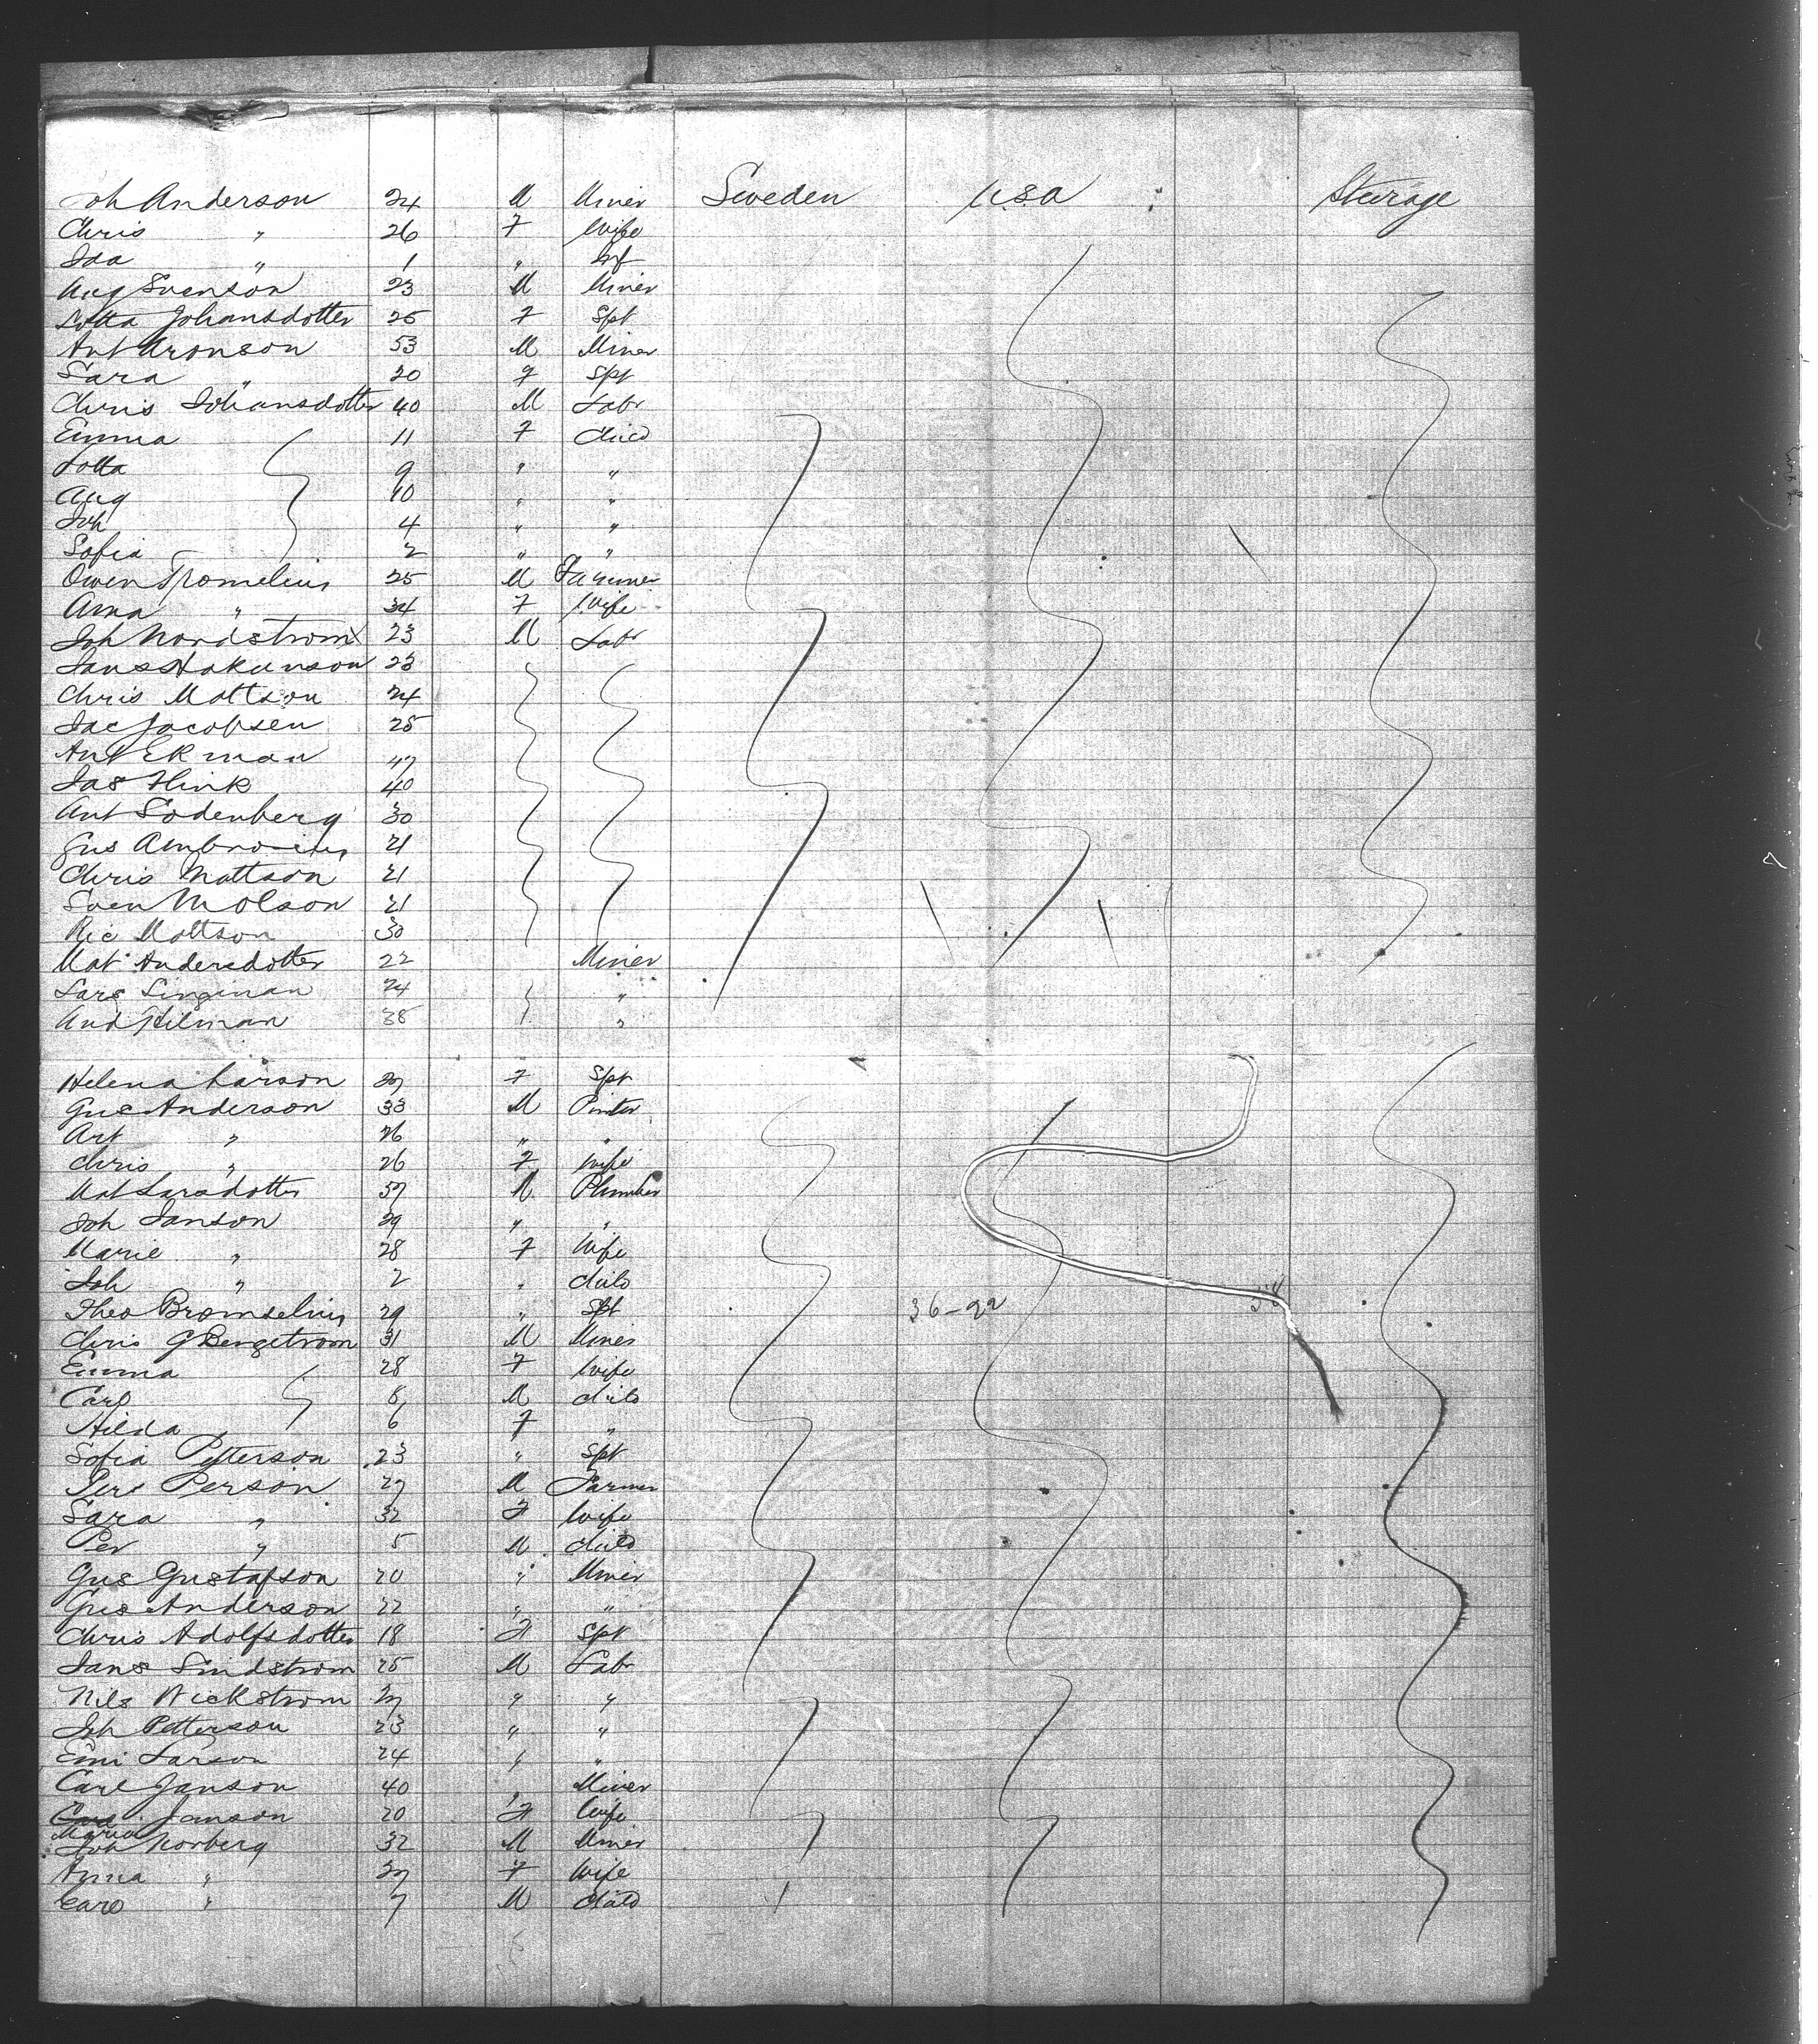 Joh Anderson 24 M Miner Sweden USA Steerage
Chris " 26 F Wife
Ida " 1 " Inf
Aug Svenson 23 M Miner
Lotta Johansdotter 25 F Spt
Ant Aronson 53 M Miner
Sara " 20 F Spt
Chris Johansdotter 40 M Labr
Emma 11 F Child
Lotta 9 " "
Aug 10 " "
Joh 4 " "
Sofia 2 " "
Owen 25 M Farmer
Anna " 34 F Wife
Joh Nordstrom 23 M Labr
Jans Hakunson 23
Chris Mattson 24
Jac Jacobsen 25
Ant Ekman 47
Jas Flink 40
Ant Sodenberg 30
Gus Ambrosius 21
Chris Mattson 21
Sven Molson 21
Ric Mattson 30
Mat Andersdotter 22 Miner
Lars Lingman 24 "
And Hilman 38 "
Helena Larson 27 F Spt
Gus Anderson 33 M
Art " 26 " "
Chris " 26 F Wife
Mat Larsdotter 37 M Plumber
Joh Janson 29 " "
Marie " 28 F Wife
Joh " 2 " Child
Theo Bromselius 29 " Spt 36-22
Chris G Bergstrom 31 M Miner
Emma 28 F Wife
Carl 8 M Child
Hilda 6 F "
Sofia Petterson 23 " Spt
Pers Person 27 M Farmer
Sara " 32 F Wife
Per " 5 M Child
Gus Gustafson 20 " Miner
Gus Anderson 22 " "
Chris Adolfsdotter 18 F Spt
Jans Lindstrom 25 M Labr
Nils Wickstrom 27 " "
Joh Petterson 23 " "
Emi Larson 24 " "
Carl Janson 40 Miner
Maria Janson 20 F Wife
Joh Norberg 32 M Miner
Anna " 27 F Wife
Carl " 7 M Child